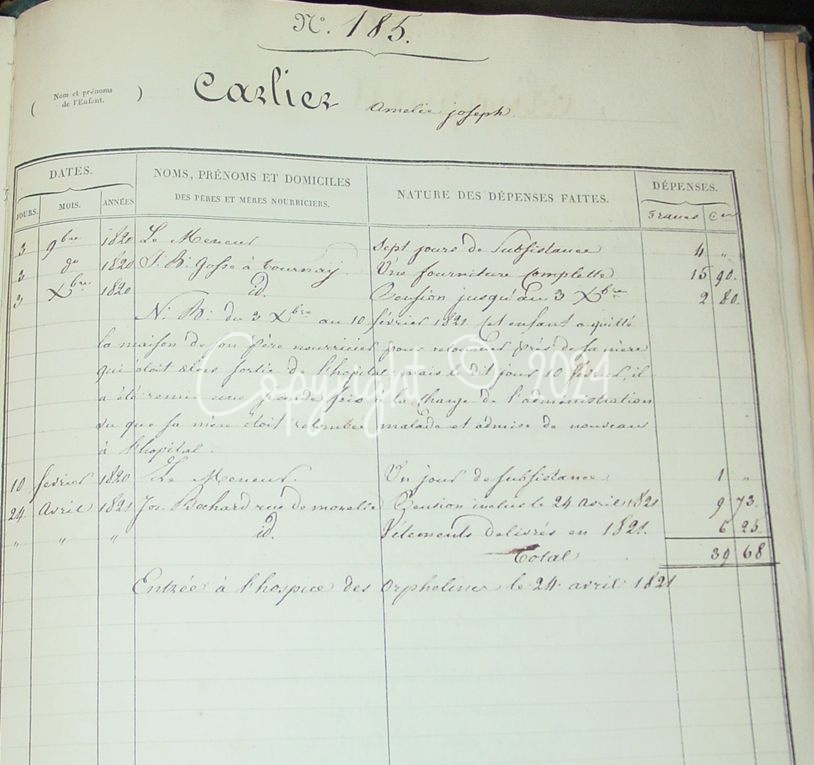 N°. 185.
( Nom et prénoms de l'Enfant. ) Carlier Amelie joseph
DATES. NOMS, PRÉNOMS ET DOMICILES DES PÈRES ET MÈRES NOURRICIERS. NATURE DES DÉPENSES FAITES. DÉPENSES.
JOURS. MOIS. ANNÉES Francs Cen
3 9bre 1820 Le Meneur Sept jours de Subsistance 4 "
3 do 1820 J. B. Gosse à Tournay Une fourniture Complette 15 90.
3 Xbre 1820 id. Pension jusqu'au 3 Xbre 2 80.
N. B. du 3 Xbre au 10 février 1821 Cet enfant a quitté
la maison de son père nourricier pour retourner près de la mère
qui étoit alors sortie de l'hopital, mais le dit jour 10 février, il
a été remis une fois à la charge de l'administration
vu que sa mère étoit retombée malade et admise de nouveau
à l'hopital.
10 fevrier 1820 Le Meneur. Un jour de subsistance 1 "
24 Avril 1821 Jos. Bochard rue de Pension inclus le 24 avril 1821 9 73.
" " " id. Vêtements delivrés en 1821. 6 25
Total 39 68
Entrée à l'hospice des Orphelines le 24 avril 1821
Copyright © 2024